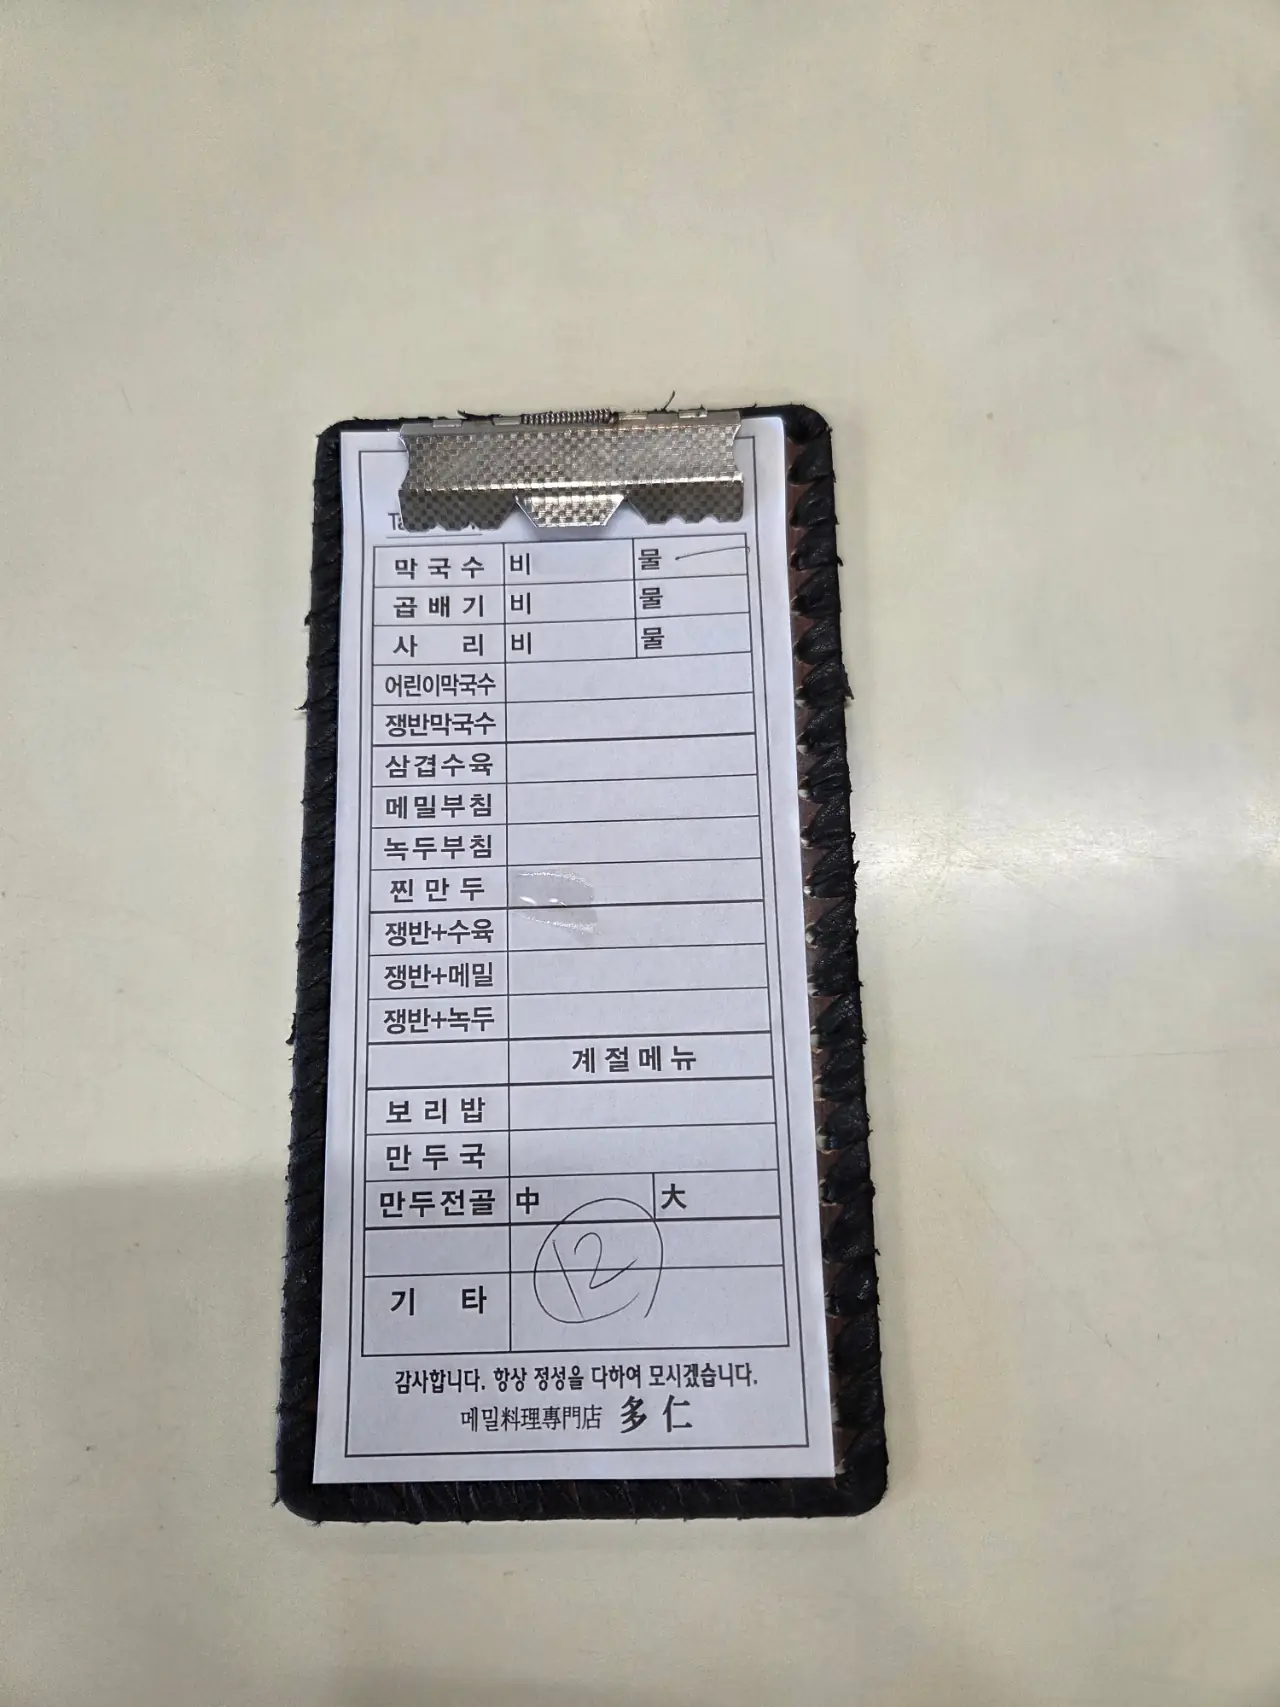 막국수 비 물 一
곱배기 비 물
사리 비 물
어린이막국수
쟁반막국수
삼겹수육
메밀부침
녹두부침
찐만두
쟁반+수육
쟁반+메밀
쟁반+녹두
계절메뉴
보리밥
만두국
만두전골 中 大
12
기타
감사합니다. 항상 정성을 다하여 모시겠습니다.
메밀料理專門店 多仁